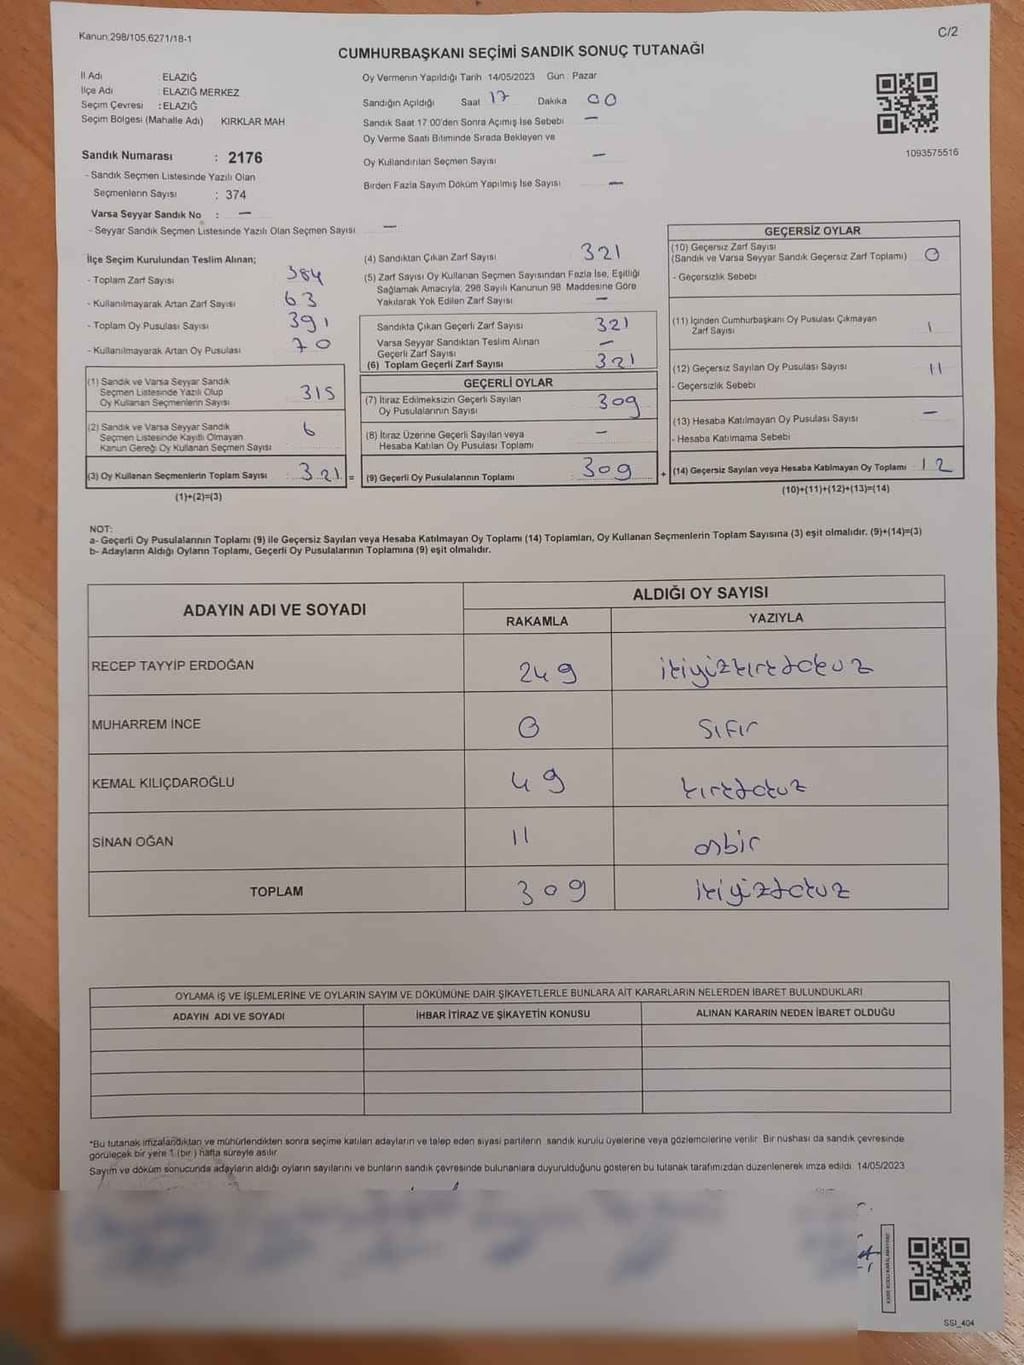 Kanun:298/105,6271/18-1
C/2
CUMHURBAŞKANI SEÇİMİ SANDIK SONUÇ TUTANAĞI
İl Adı : ELAZIĞ
İlçe Adı : ELAZIĞ MERKEZ
Seçim Çevresi : ELAZIĞ
Seçim Bölgesi (Mahalle Adı) KIRKLAR MAH
Sandık Numarası : 2176
- Sandık Seçmen Listesinde Yazılı Olan
Seçmenlerin Sayısı : 374
Varsa Seyyar Sandık No : —
- Seyyar Sandık Seçmen Listesinde Yazılı Olan Seçmen Sayısı —
Oy Vermenin Yapıldığı Tarih 14/05/2023 Gün : Pazar
Sandığın Açıldığı Saat 17 Dakika 00
Sandık Saat 17:00'den Sonra Açımış İse Sebebi —
Oy Verme Saati Bitiminde Sırada Bekleyen ve
Oy Kullandırılan Seçmen Sayısı —
Birden Fazla Sayım Döküm Yapılmış İse Sayısı —
1093575516
İlçe Seçim Kurulundan Teslim Alınan;
- Toplam Zarf Sayısı 384
- Kullanılmayarak Artan Zarf Sayısı 63
- Toplam Oy Pusulası Sayısı 391
- Kullanılmayarak Artan Oy Pusulası 70
(1) Sandık ve Varsa Seyyar Sandık
Seçmen Listesinde Yazılı Olup
Oy Kullanan Seçmenlerin Sayısı 315
(2) Sandık ve Varsa Seyyar Sandık
Seçmen Listesinde Kayıtlı Olmayan
Kanun Gereği Oy Kullanan Seçmen Sayısı 6
(3) Oy Kullanan Seçmenlerin Toplam Sayısı 321 =
(1)+(2)=(3)
(4) Sandıktan Çıkan Zarf Sayısı 321
(5) Zarf Sayısı Oy Kullanan Seçmen Sayısından Fazla İse, Eşitliği
Sağlamak Amacıyla; 298 Sayılı Kanunun 98. Maddesine Göre
Yakılarak Yok Edilen Zarf Sayısı —
Sandıkta Çıkan Geçerli Zarf Sayısı 321
Varsa Seyyar Sandıktan Teslim Alınan
Geçerli Zarf Sayısı —
(6) Toplam Geçerli Zarf Sayısı 321
GEÇERLİ OYLAR
(7) İtiraz Edilmeksizin Geçerli Sayılan
Oy Pusulalarının Sayısı 309
(8) İtiraz Üzerine Geçerli Sayılan veya
Hesaba Katılan Oy Pusulası Toplamı —
(9) Geçerli Oy Pusulalarının Toplamı 309 +
GEÇERSİZ OYLAR
(10) Geçersiz Zarf Sayısı
(Sandık ve Varsa Seyyar Sandık Geçersiz Zarf Toplamı) 0
- Geçersizlik Sebebi
(11) İçinden Cumhurbaşkanı Oy Pusulası Çıkmayan
Zarf Sayısı 1
(12) Geçersiz Sayılan Oy Pusulası Sayısı 11
- Geçersizlik Sebebi
(13) Hesaba Katılmayan Oy Pusulası Sayısı —
- Hesaba Katılmama Sebebi
(14) Geçersiz Sayılan veya Hesaba Katılmayan Oy Toplamı 12
(10)+(11)+(12)+(13)=(14)
NOT:
a- Geçerli Oy Pusulalarının Toplamı (9) ile Geçersiz Sayılan veya Hesaba Katılmayan Oy Toplamı (14) Toplamları, Oy Kullanan Seçmenlerin Toplam Sayısına (3) eşit olmalıdır. (9)+(14)=(3)
b- Adayların Aldığı Oyların Toplamı, Geçerli Oy Pusulalarının Toplamına (9) eşit olmalıdır.
ADAYIN ADI VE SOYADI ALDIĞI OY SAYISI
RAKAMLA YAZIYLA
RECEP TAYYİP ERDOĞAN 249 ikiyüzkırkdokuz
MUHARREM İNCE 0 Sıfır
KEMAL KILIÇDAROĞLU 49 kırkdokuz
SİNAN OĞAN 11 onbir
TOPLAM 309 ikiyüzdokuz
OYLAMA İŞ VE İŞLEMLERİNE VE OYLARIN SAYIM VE DÖKÜMÜNE DAİR ŞİKAYETLERLE BUNLARA AİT KARARLARIN NELERDEN İBARET BULUNDUKLARI
ADAYIN ADI VE SOYADI İHBAR İTİRAZ VE ŞİKAYETİN KONUSU ALINAN KARARIN NEDEN İBARET OLDUĞU
*Bu tutanak imzalandıktan ve mühürlendikten sonra seçime katılan adayların ve talep eden siyasi partilerin sandık kurulu üyelerine veya gözlemcilerine verilir. Bir nüshası da sandık çevresinde
görülecek bir yere 1 (bir ) hafta süreyle asılır.
Sayım ve döküm sonucunda adayların aldığı oyların sayılarını ve bunların sandık çevresinde bulunanlara duyurulduğunu gösteren bu tutanak tarafımızdan düzenlenerek imza edildi. 14/05/2023
SSI_404